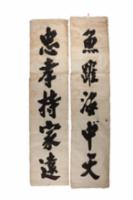 魚躍海中天
忠孝持家遠